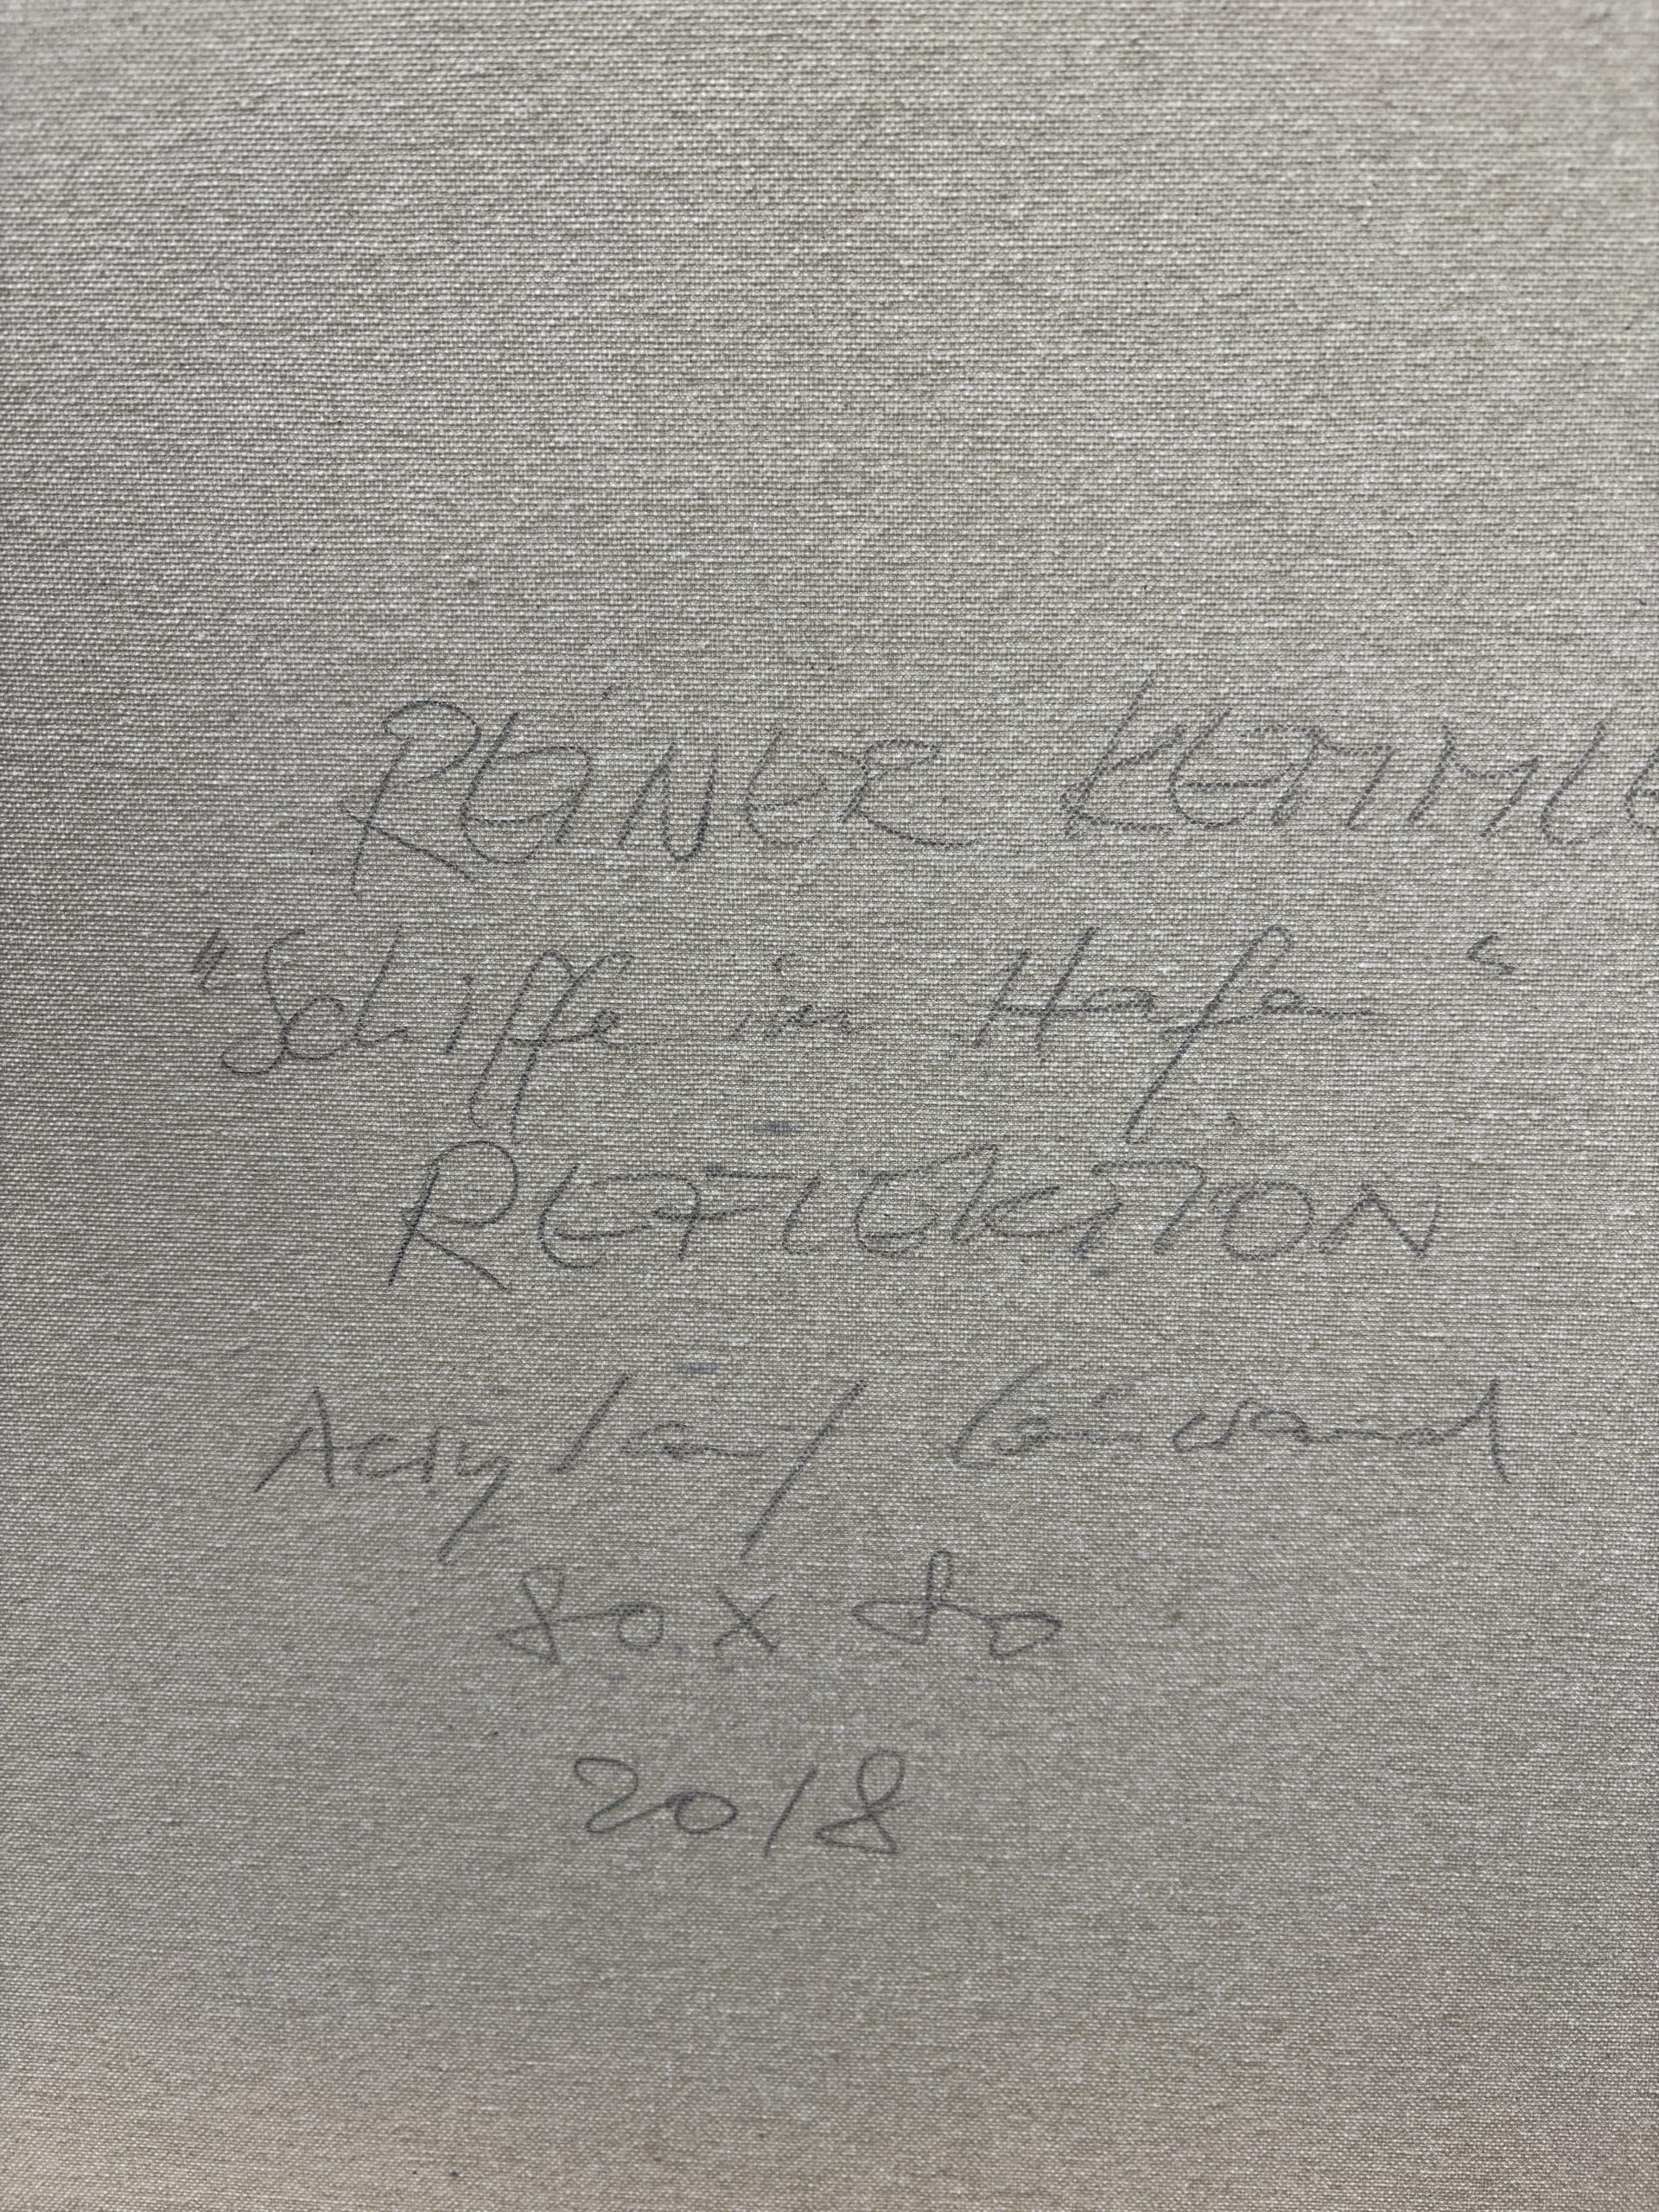 REINER KEMMLE
"Schiffe im Hafen"
REFLEKTION
Acryl auf Leinwand
80 x 80
2018